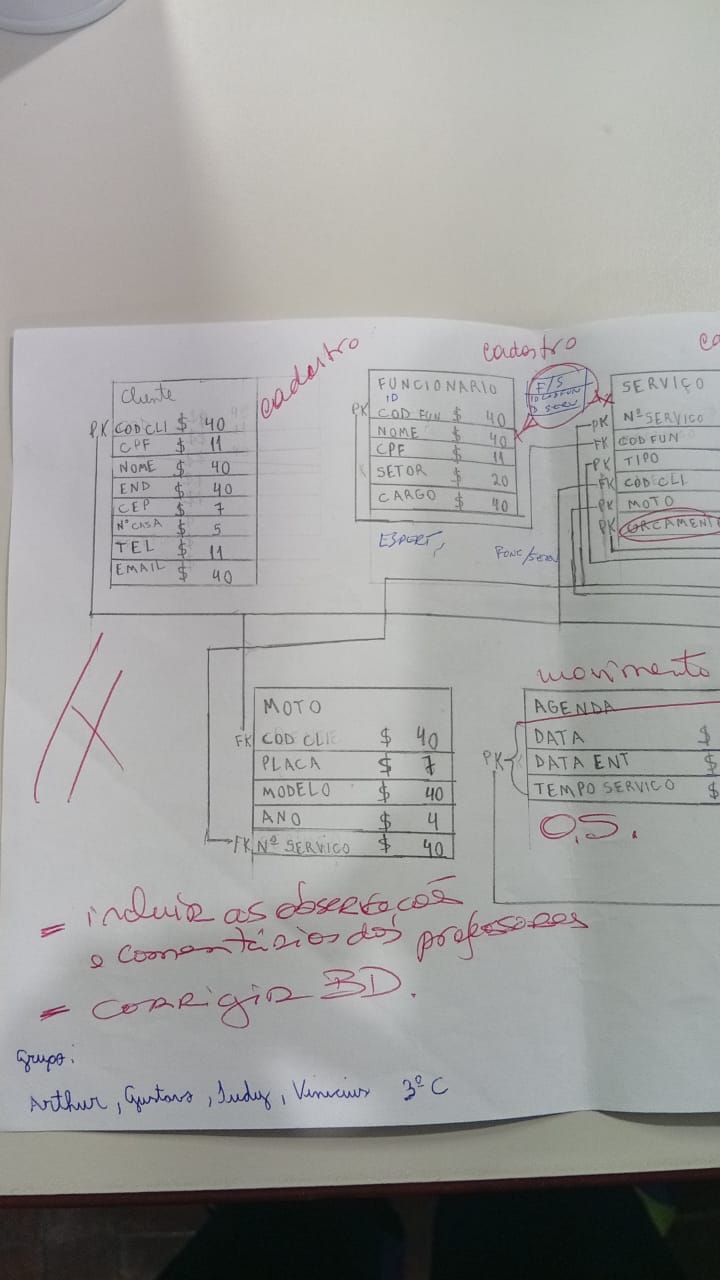 cadastro
Cliente
PK COD CLI $ 40
CPF $ 11
NOME $ 40
END $ 40
CEP $ 7
Nº CASA $ 5
TEL $ 11
EMAIL $ 40
cadastro
FUNCIONARIO
ID
PK COD FUN $ 40
NOME $ 40
CPF $ 11
SETOR $ 20
CARGO $ 40
F/S
FUNC/SERV
ca
SERVIÇO
PK Nº SERVICO
FK COD FUN
PK TIPO
FK COD CLI
PK MOTO
PK ORCAMENTO
MOTO
FK COD CLIE $ 40
PLACA $ 7
MODELO $ 40
ANO $ 4
FK Nº SERVICO $ 40
movimento
AGENDA
PK
DATA $
DATA ENT $
TEMPO SERVICO $
O.S.
= incluir as observações
e comentários dos professores
= CORRIGIR BD.
Grupo:
Arthur, Gustavo, , Vinicius 3º C